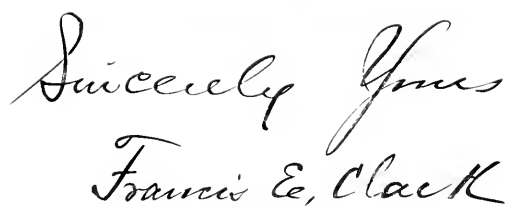 Sincerely Yours
Francis E. Clark